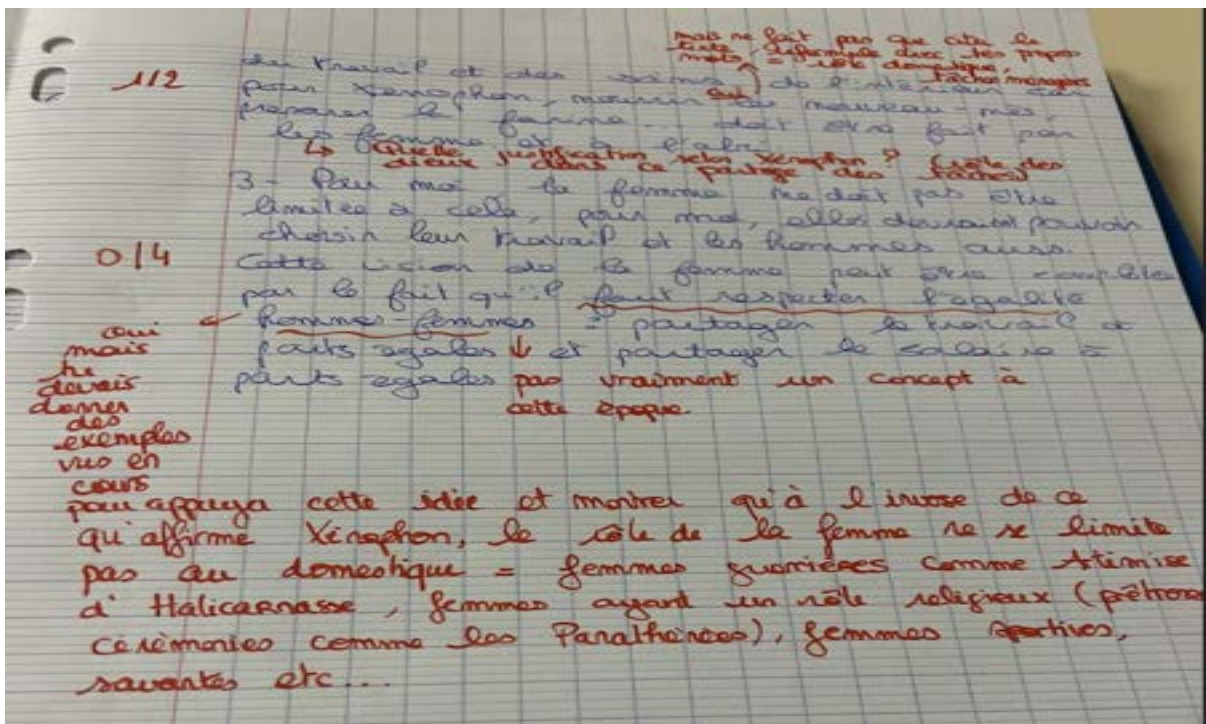 mais ne fait pas que citer le
texte, reformule avec tes propres
mots = rôle domestique,
tâches ménagères
1/2
du travail et des soins de l'interieur
pour Xenophon, nourrir les nouveau-nés,
preparer la farine... doit etre fait par
les femme et a l'abri
↳ Quelle justification selon Xénophon ? (rôle des
dieux dans ce partage des tâches)
3 - Pour moi la femme ne doit pas etre
limitee à cela, pour moi, elles devraient pouvoir
choisir leur travail et les hommes aussi.
0/4
Cette vision de la femme peut etre completee
par le fait qu'il faut respecter l'egalite
hommes-femmes = partager le travail a
parts egales et partager le salaire a
parts egales
pas vraiment un concept à
cette époque.
oui
mais
tu
devais
donner
des
exemples
vus en
cours
pour appuyer cette idée et montrer qu'à l'inverse de ce
qu'affirme Xénophon, le rôle de la femme ne se limite
pas au domestique = femmes guerrières comme Artémise
d'Halicarnasse, femmes ayant un rôle religieux (prêtresses
cérémonies comme les Panathénées), femmes sportives,
savantes etc...